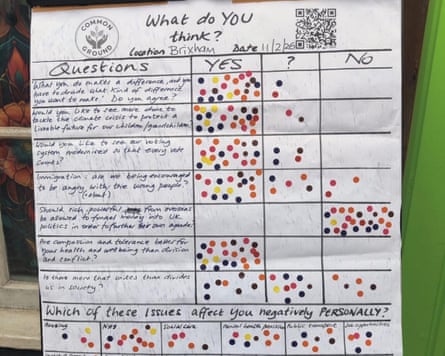 COMMON
GROUND
What do YOU
think?
Location Brixham Date 11/2/25
Questions YES ? NO
"What you do makes a difference, and you
have to decide what kind of difference
you want to make". Do you agree?
Would you like to see more done to
tackle the climate crisis to protect a
liveable future for our children/grandchildren?
Would you like to see our voting
system modernised so that every vote
counts?
Immigration: are we being encouraged
to be angry with the wrong people?
(about)
Should rich, powerful from overseas
be allowed to funnel money into UK
politics in order to further their own agenda?
Are compassion and tolerance better for
your health and wellbeing than division
and conflict?
Is there more that unites than divides
us in society?
Which of these issues affect you negatively PERSONALLY?
Housing NHS Social care Mental health provision Public transport Job opportunities